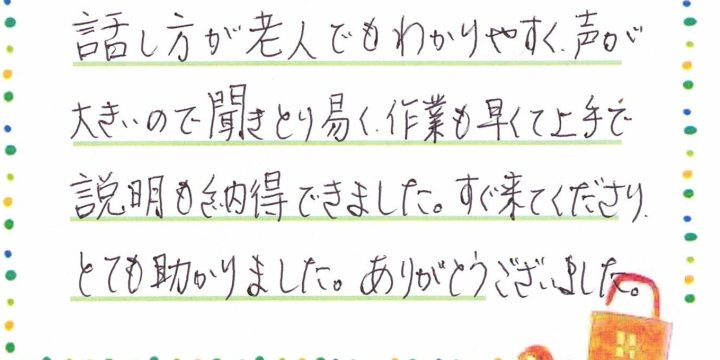 話し方が老人でもわかりやすく、声が
大きいので聞きとり易く、作業も早くて上手で
説明も納得できました。すぐ来てくださり、
とても助かりました。ありがとうございました。